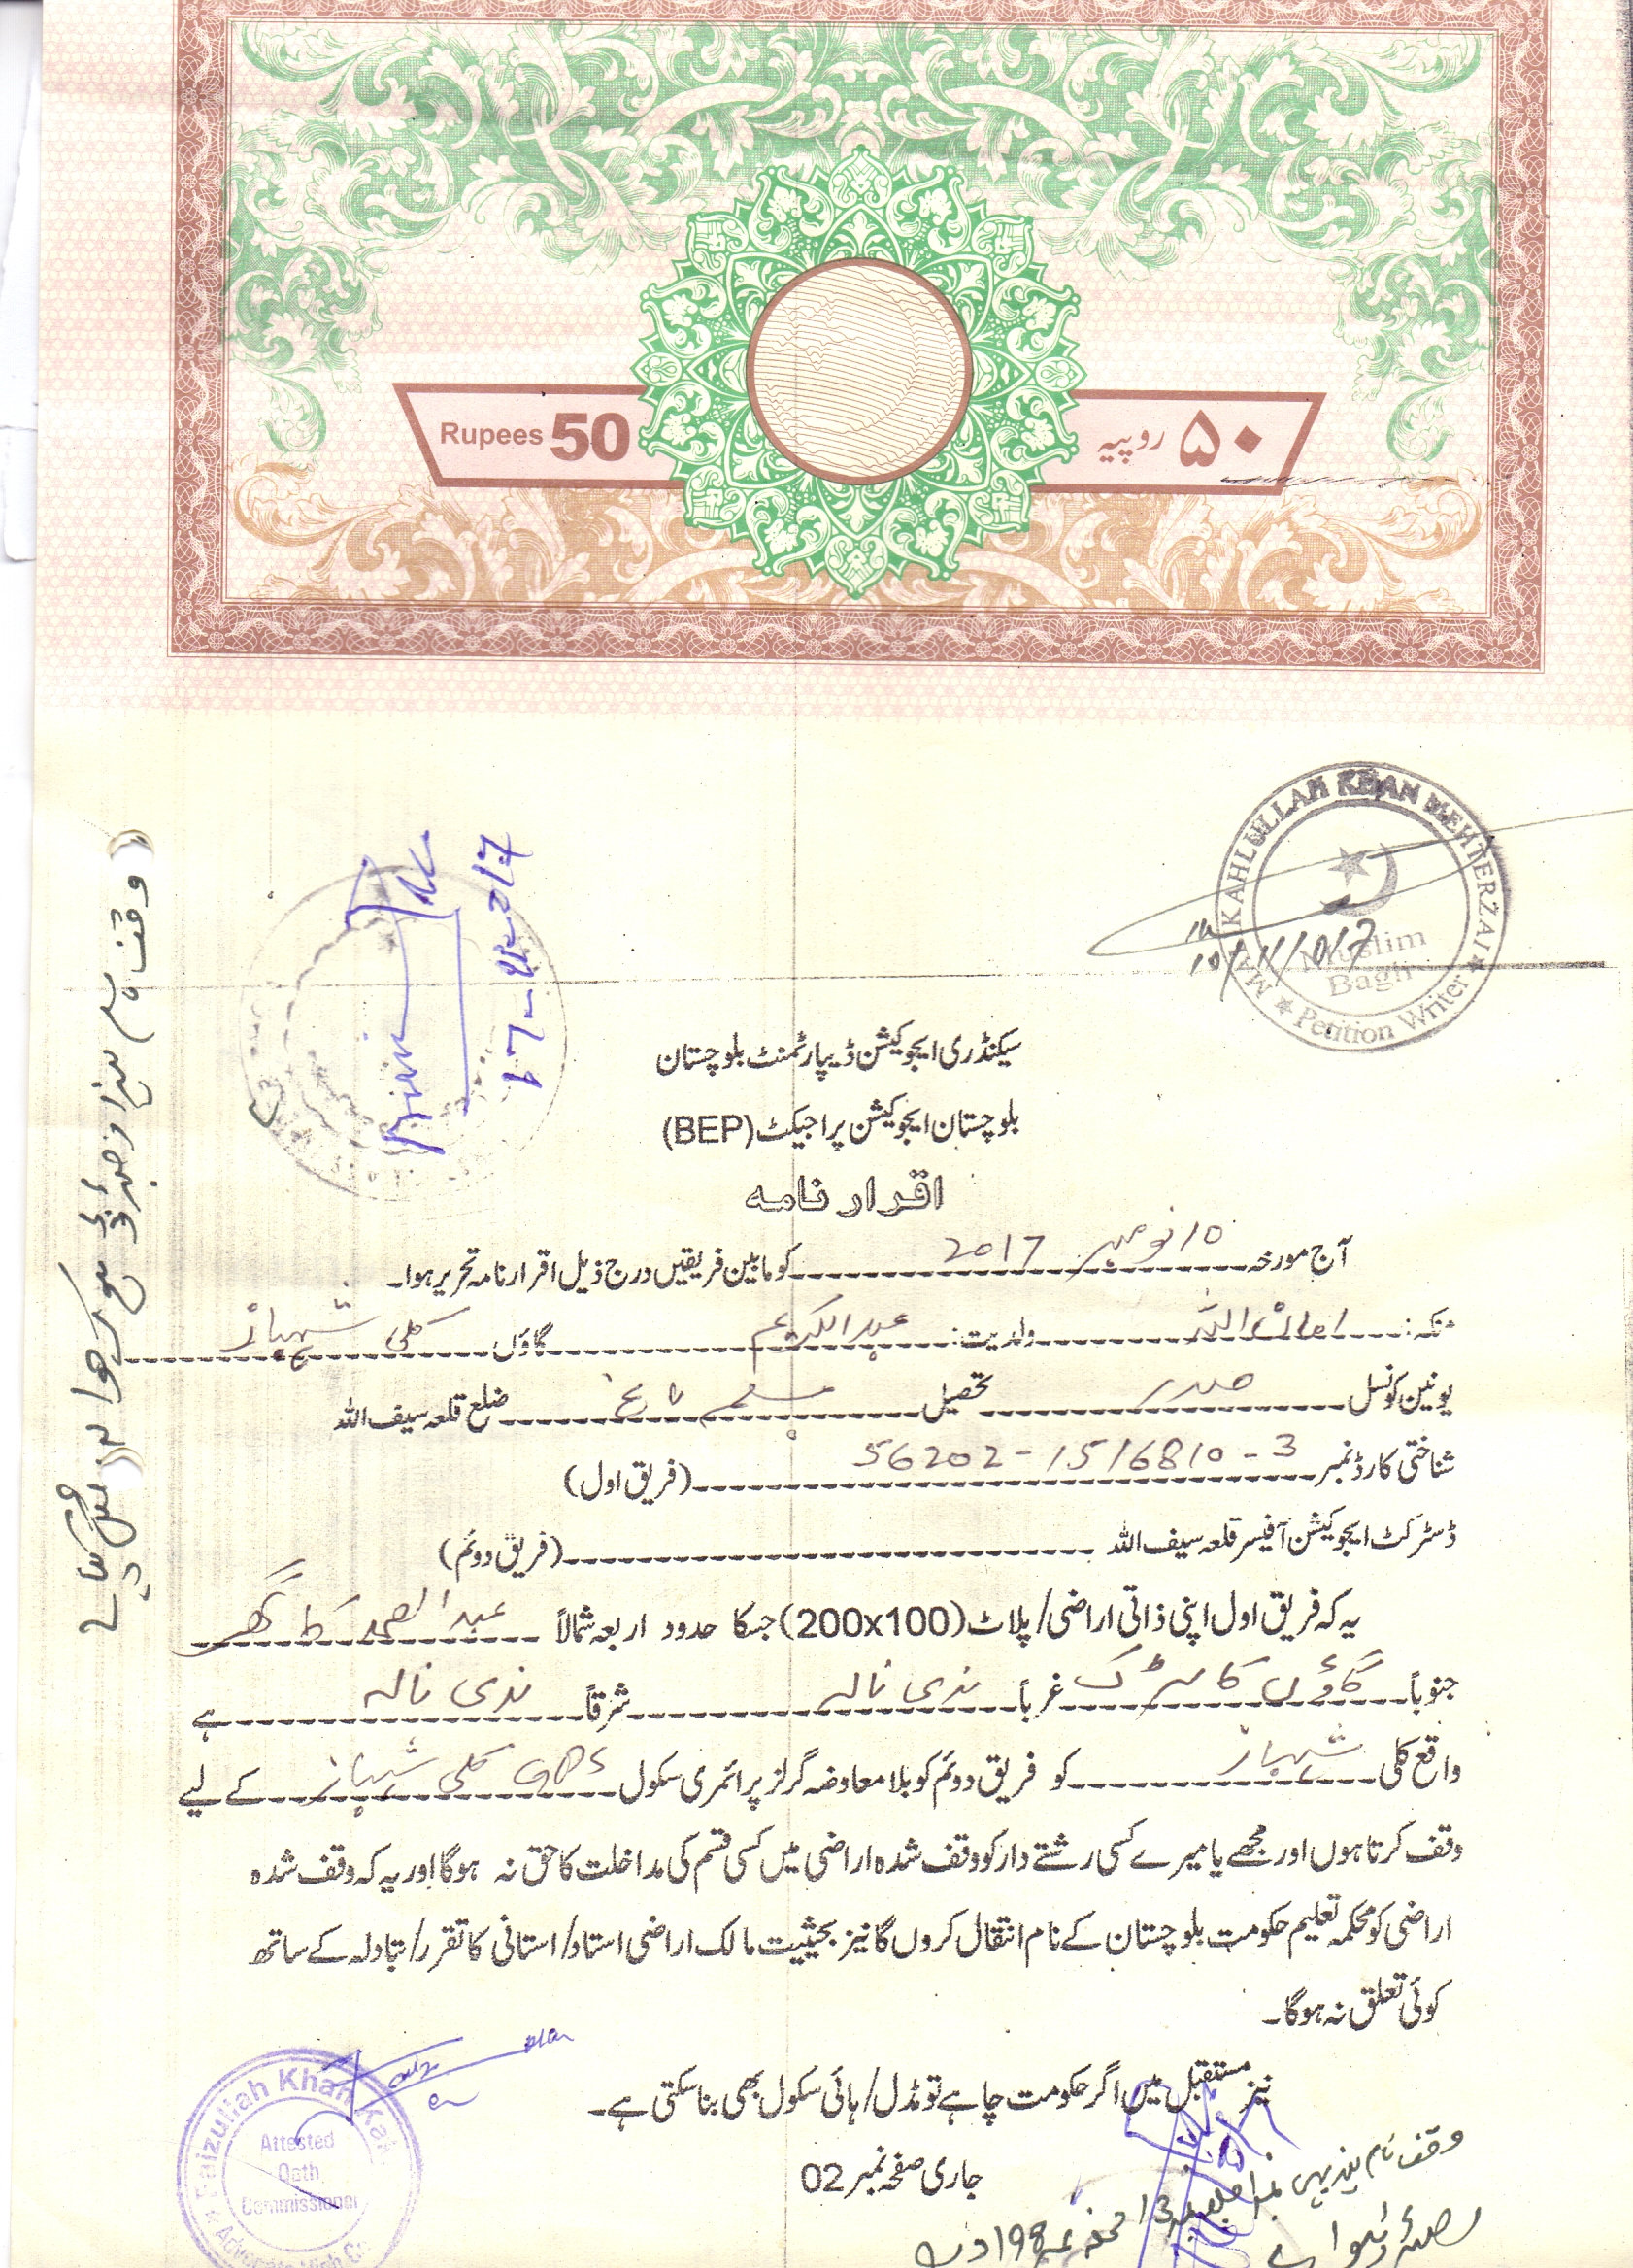 Rupees 50
۵۰ روپیہ
KAHLULLAH KHAN MEHTERZAI
Muslim
Bagh
Petition Writer
17-11-2017
سیکنڈری ایجوکیشن ڈیپارٹمنٹ بلوچستان
بلوچستان ایجوکیشن پراجیکٹ (BEP)
اقرار نامہ
آج مورخہ 10 نومبر 2017 کو مابین فریقیں درج ذیل اقرار نامہ تحریر ہوا۔
منکہ: امان اللہ ولدیت: عبدالکریم گاؤں کلی شہباز
یونین کونسل صدر تحصیل مسلم باغ ضلع قلعہ سیف اللہ
شناختی کارڈ نمبر 56202-1516810-3 (فریق اول)
ڈسٹرکٹ ایجوکیشن آفیسر قلعہ سیف اللہ (فریق دوئم)
یہ کہ فریق اول اپنی ذاتی اراضی/پلاٹ (200x100) جسکا حدود اربعہ شمالاً عبدالصمد کا گھر
جنوباً گاؤں کا سڑک غرباً ندی نالہ شرقاً ندی نالہ ہے
واقع کلی شہباز کو فریق دوئم کو بلا معاوضہ گرلز پرائمری سکول کلی شہباز کے لیے
وقف کرتا ہوں اور مجھے یا میرے کسی رشتے دار کو وقف شدہ اراضی میں کسی قسم کی مداخلت کا حق نہ ہوگا اور یہ کہ وقف شدہ
اراضی کو محکمہ تعلیم حکومت بلوچستان کے نام انتقال کروں گا نیز بحیثیت مالک اراضی استاد/استانی کا تقرر/تبادلہ کے ساتھ
کوئی تعلق نہ ہوگا۔
نیز مستقبل میں اگر حکومت چاہے تو مڈل/ہائی سکول بھی بنا سکتی ہے۔
جاری صفحہ نمبر 02
Faizullah Khan
Attested
Oath
Commissioner
وقف نام